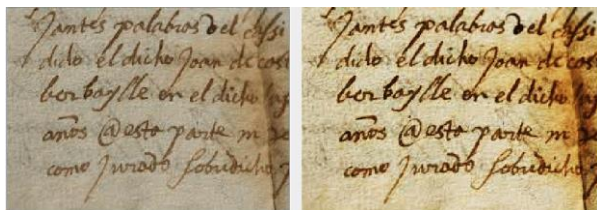 jantes palabras del cassi
dido el dicho Joan de cast
borbaylle en el dicho lug
años @ esta parte m
como jurado sobredicho
jantes palabras del cassi
dido el dicho Joan de cast
borbaylle en el dicho lug
años @ esta parte m
como jurado sobredicho